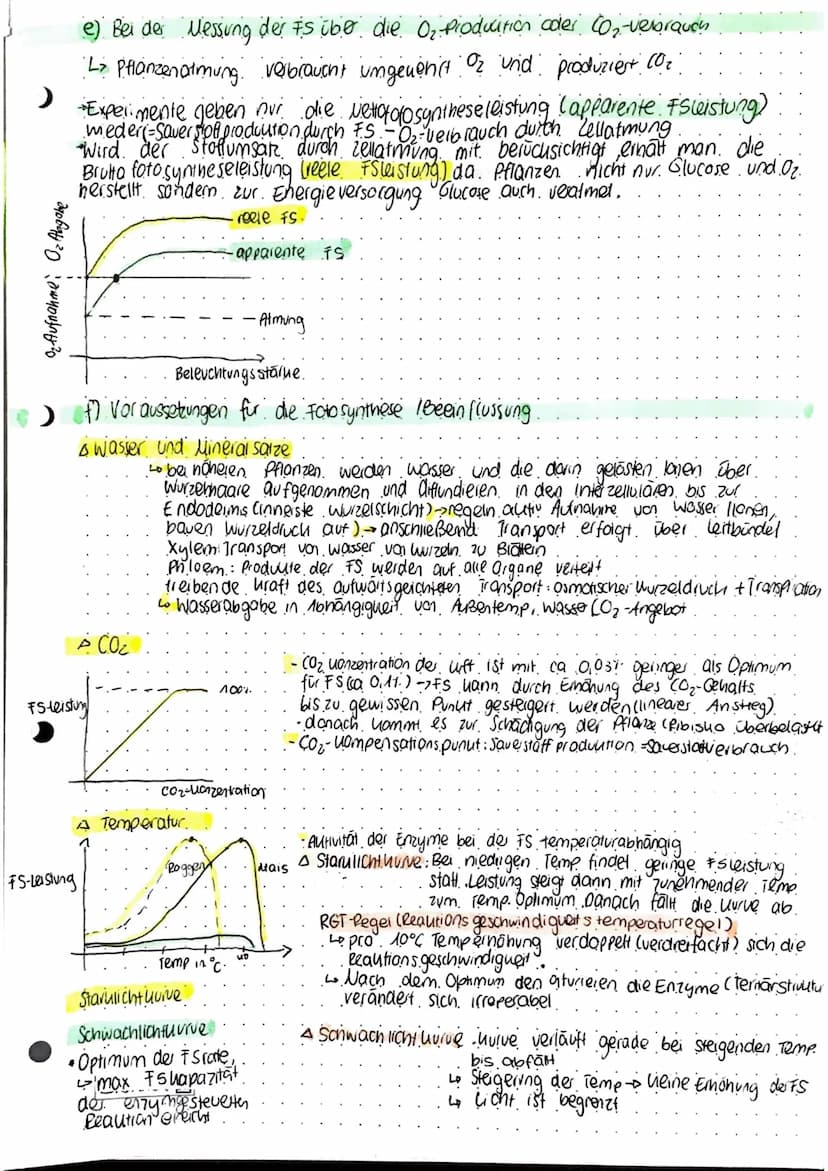 e) Bei der Messung der FS über die O₂-Produktion oder CO₂-Verbrauch
↳ Pflanzenatmung verbraucht umgekehrt O₂ und produziert CO₂
→Experimente geben nur die Nettofotosyntheseleistung (apparente FSleistung)
wieder(=Sauerstoffproduktion durch FS - O₂-verbrauch durch Zellatmung
→Wird der Stoffumsatz durch Zellatmung mit berücksichtigt, erhält man die
Brutto fotosyntheseleistung (reele FSleistung) da Pflanzen nicht nur Glucose und O₂
herstellt sondern zur Energieversorgung Glucose auch veratmet.
O₂ Aufnahme O₂ Abgabe
reele FS
apparente FS
Atmung
Beleuchtungsstärke
f) Voraussetzungen für die Fotosynthese /Beeinflussung
△ Wasser und Mineralsalze
↳ bei höheren Pflanzen werden Wasser und die darin gelösten Ionen über
Wurzelhaare aufgenommen und diffundieren in den Interzellulären bis zur
Endodermis (innerste Wurzelschicht)→regeln aktiv Aufnahme von Wasser (Ionen,
bauen Wurzeldruck auf)→ anschließend Transport erfolgt über Leitbündel
Xylem: Transport von Wasser von Wurzeln zu Blättern
Phloem: Produkte der FS werden auf alle Organe verteilt
treibende Kraft des aufwärtsgerichteten Transport: osmotischer Wurzeldruck + Transpiration
↳ Wasserabgabe in Abhängigkeit von Außentemp, Wasser CO₂-Angebot
△ CO₂
FS-Leistung
100%
CO₂-Konzentration
- CO₂ Konzentration der Luft ist mit ca 0,03% geringer als Optimum
für FS(ca 0,1%) →FS kann durch Erhöhung des CO₂-Gehalts
bis zu gewissen Punkt gesteigert werden (linearer Anstieg)
- danach kommt es zur Schädigung der Pflanze (Rbisko überbelastet
- CO₂-Kompensationspunkt: Sauerstoff produktion = Sauerstoffverbrauch
△ Temperatur
FS-Leistung
Roggen
Mais
40
Temp in °C
Starklichtkurve
Schwachlichtkurve
• Optimum der FSrate,
↳ max FSkapazität
der enzymgesteuerten
Reaktion erreicht
- Aktivität der Enzyme bei der FS temperaturabhängig
△ Starklichtkurve: Bei niedrigen Temp findet geringe FSleistung
statt. Leistung steigt dann mit zunehmender Temp.
zum Temp. Optimum. Danach fällt die Kurve ab
RGT-Regel (Reaktionsgeschwindigkeitstemperaturregel)
↳ pro 10°C Temperhöhung verdoppelt (verdreifacht) sich die
Reaktionsgeschwindigkeit.
↳ Nach dem Optimum denaturieren die Enzyme (Tertiärstruktur
verändert sich irreperabel
△ Schwachlichtkurve Kurve verläuft gerade bei steigenden Temp
bis abfällt
↳ Steigering der Temp → keine Erhöhung der FS
↳ Licht ist begrenzt